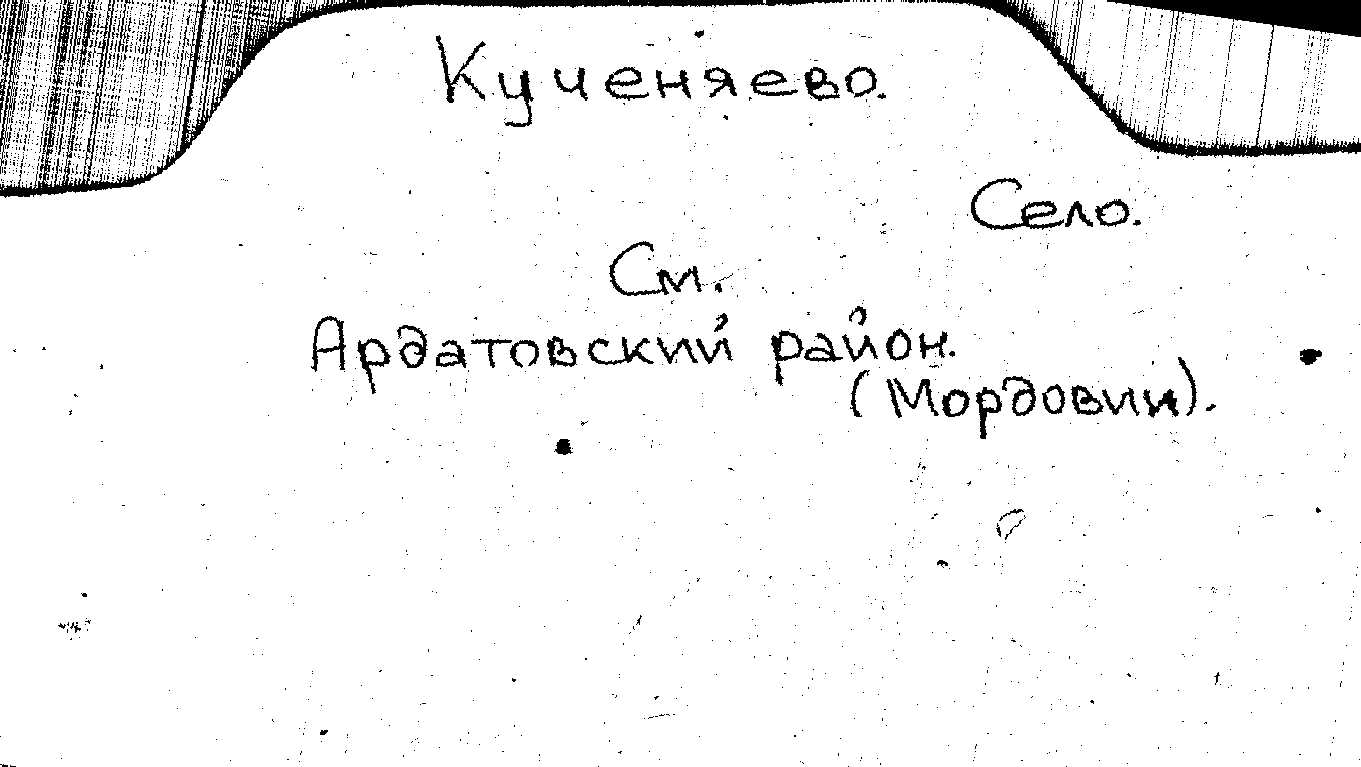 Кученяево.
Село.
См.
Ардатовский район.
(Мордовии).